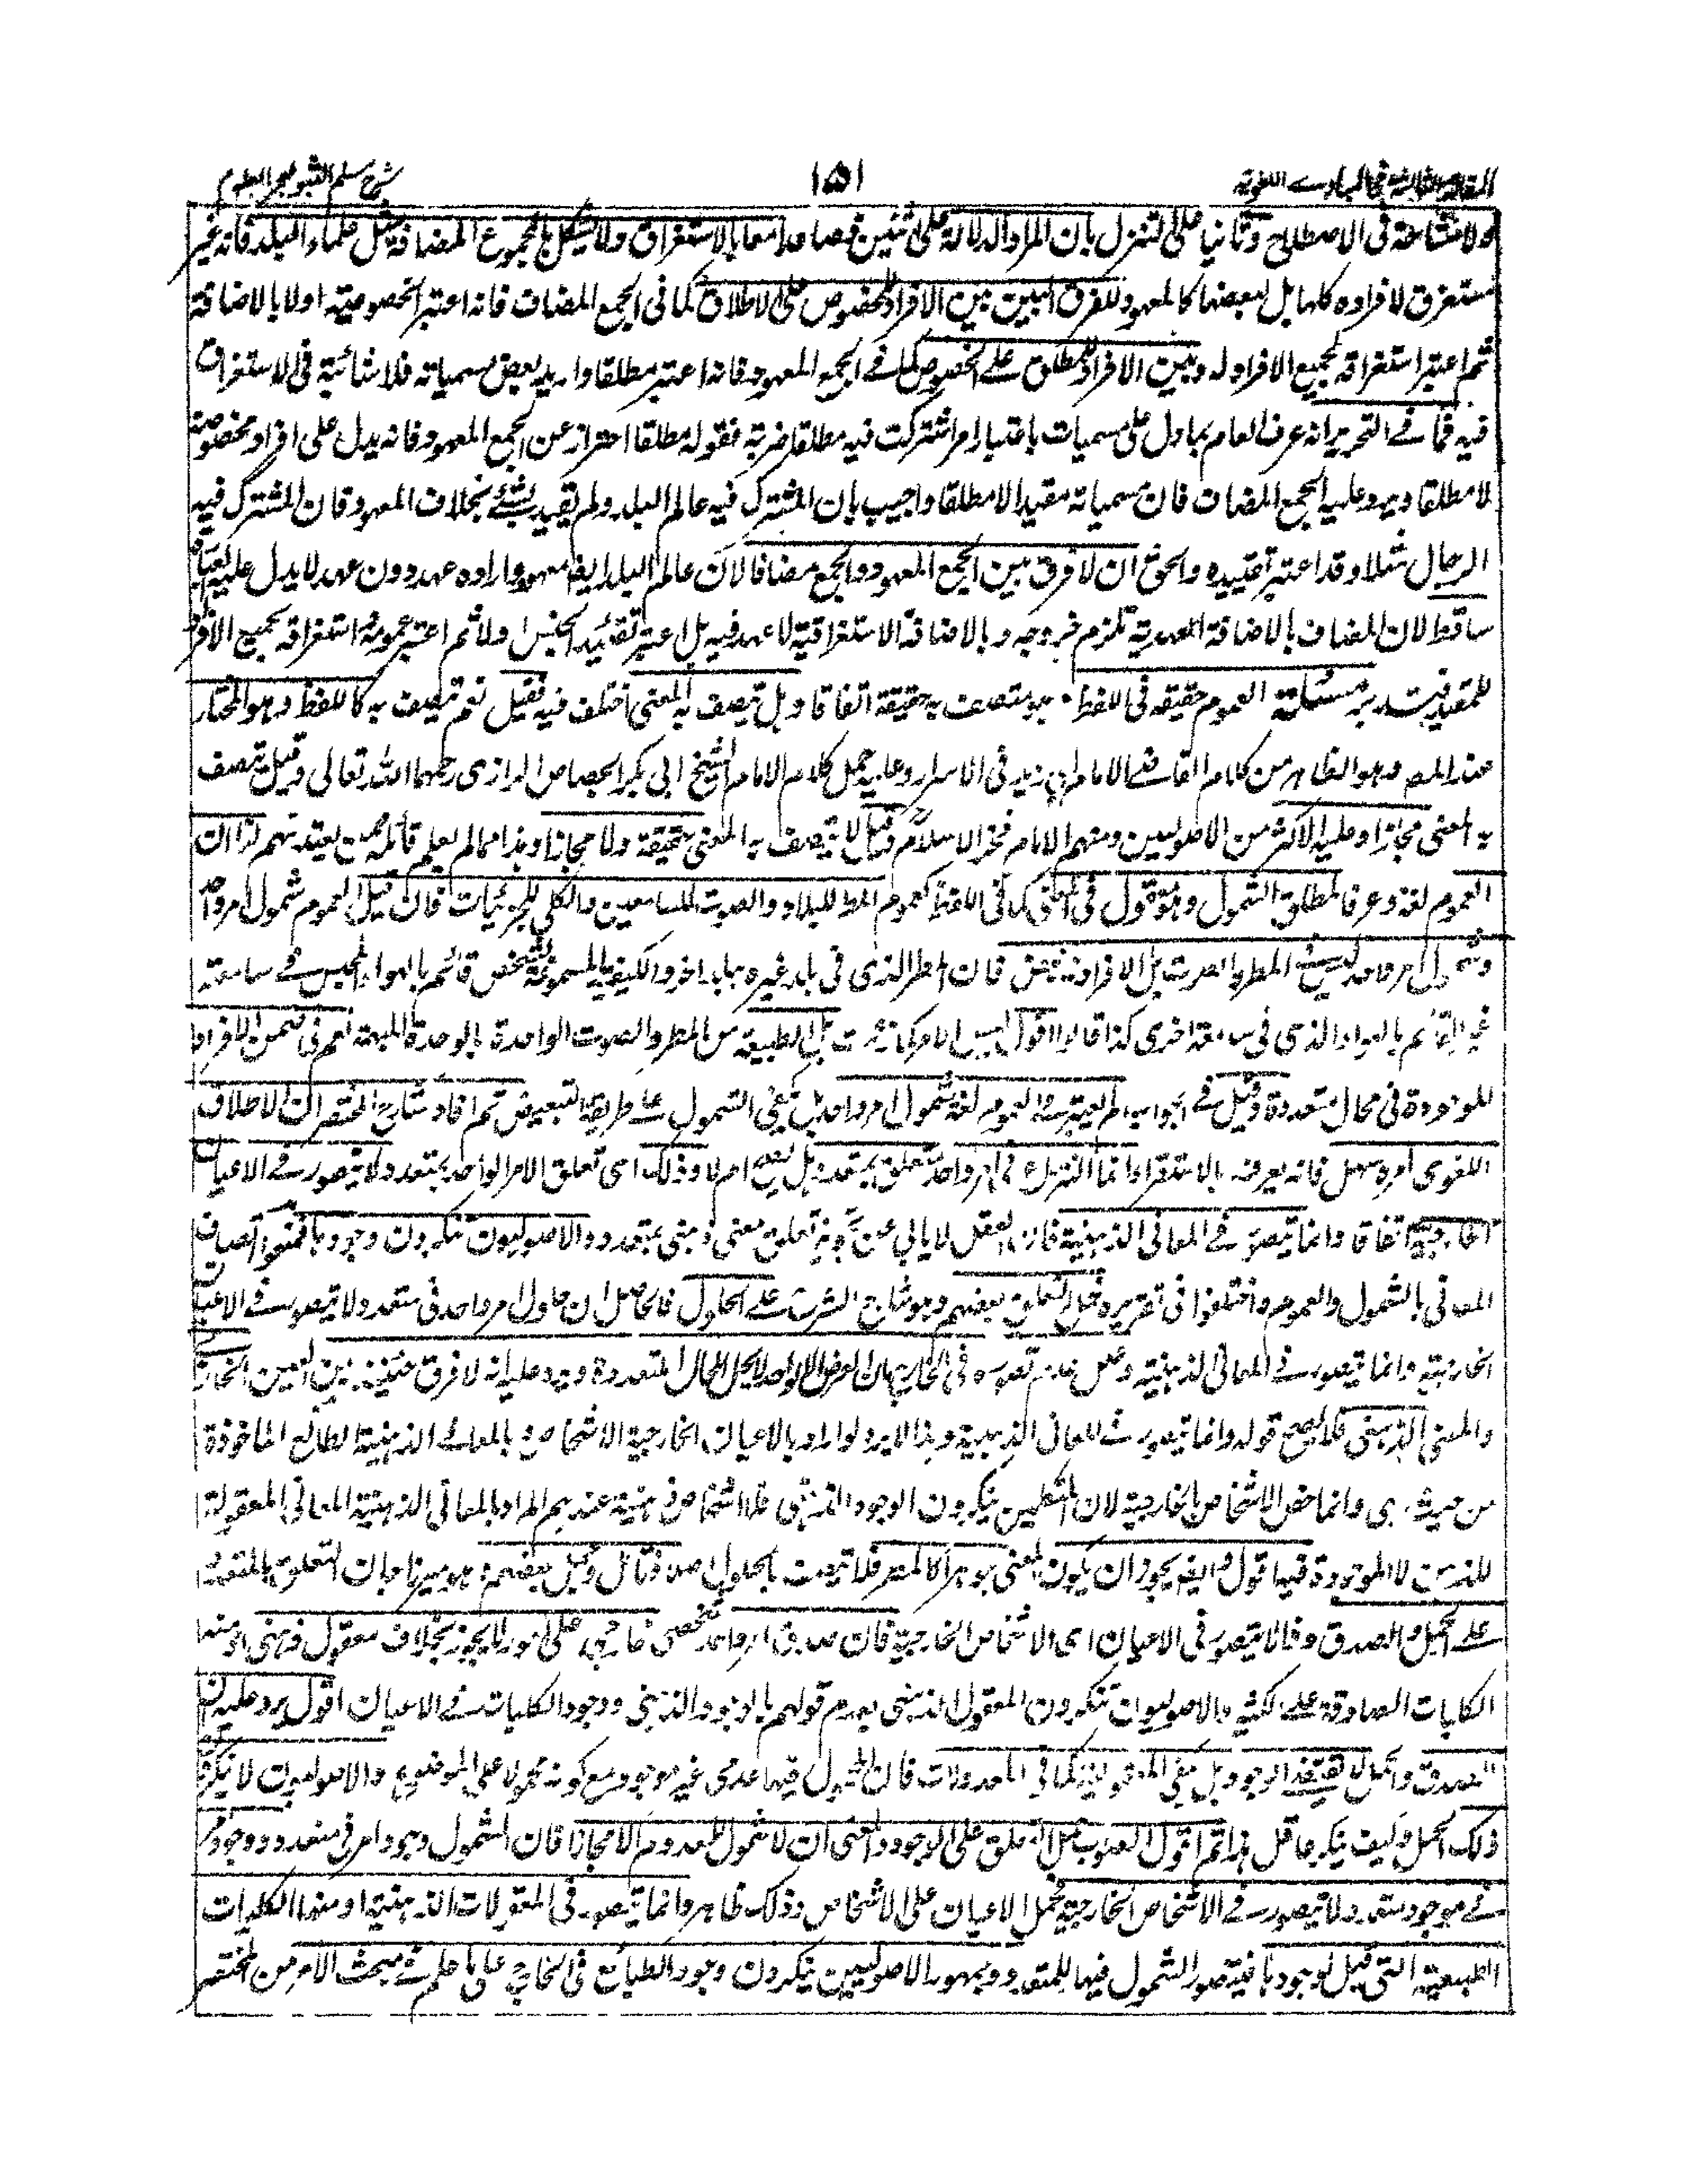 المقالة الثالثة في المبادي اللغوية
١٥١
شرح مسلم الثبوت لبحر العلوم
ولا مشاحة فى الاصطلاح وثانيا على التنزل بان المراد الدلالة على اثنين فصاعدا معا بالاستغراق ولا يشكل بالجموع المضافة مثل علماء البلد فانه غير
مستغرق لافراده كلها بل لبعضها كالمعهود للفرق البين بين الافراد المخصوص على الاطلاق كما فى الجمع المضاف فانه اعتبر الخصوصية اولا بالاضافة
ثم اعتبر استغراقه لجميع الافراد له وبين الافراد المطلق على الخصوص كما فى الجمع المعهود فانه اعتبر مطلقا واريد بعض مسمياته فلا شائبة فى الاستغراق
فيه فما فى التحرير انه عرف العام بما دل على مسميات باعتبار امر اشتركت فيه مطلقا ضربة فقوله مطلقا احتراز عن الجمع المعهود فانه يدل على افراد مخصوصة
لا مطلقا ويرد عليه الجمع المضاف فان مسمياته مقيد لا مطلقا واجيب بان المشترك فيه عالم البلد ولم يتقيد بشئ بخلاف المعهود فان المشترك فيه
الرجال مثلا وقد اعتبر تقييده والحق ان لا فرق بين الجمع المعهود والجمع مضافا لان عالم البلد ايضا معهود وارادة عهد دون عهد لا يدل عليه العبارة
ساقط لان المضاف بالاضافة العهدية تلزم خروجه وبالاضافة الاستغراقية لا عهد فيه بل اعتبر تقييد الجنس اولا ثم اعتبر عمومه واستغراقه بجميع الافراد
للمقيد فيتدبر مسئلة العموم حقيقة فى اللفظ هو يتصف به حقيقة اتفاقا وهل يتصف به المعنى اختلف فيه فقيل نعم يتصف به كاللفظ وهو المختار
عند المص وهو الظاهر من كلام القاضي الامام ابي زيد فى الاسرار وعليه حمل كلام الامام الشيخ ابي بكر الجصاص الرازى رحمهما الله تعالى وقيل يتصف
به المعنى مجازا وعليه الاكثر من الاصوليين ومنهم الامام فخر الاسلام وقيل لا يتصف به المعنى حقيقة ولا مجازا وهذا مما لم يعلم قائله ممن يعتد بهم لنا ان
العموم لغة وعرفا لمطلق الشمول وهو مقول فى المعنى كما فى اللفظ كعموم المطر للبلاد والصوت للسامعين والكلي للجزئيات فان قيل العموم شمول امر واحد
وشمول امر واحد ليس فى المطر والصوت بل الافراد فان المطر الذى فى بلد غيره ببلد اخر والكيفية المسموعة لشخص قائم بالهواء المحبس فى سامعته
غير القائم بالهواء الذى فى سامعة اخرى كذا قالوا اقول ليس الامر كما زعمت بل الطبيعة من المطر والصوت الواحدة بالوحدة المبهمة تعم فى ضمن الافراد
الموجودة فى محال متعددة وقيل فى الجواب لم يعتبر فى العموم لغة شمول امر واحد بل يكفى الشمول على طريقة التبعيض ثم افاد شارح المختصر ان الاطلاق
اللغوى امره سهل فانه يعرف بالاستقراء وانما النزاع فى امر واحد متعلق بمتعدد هل يصح ام لا وذلك اى تعلق الامر الواحد بمتعدد لا يتصور فى الاعيان
الخارجية اتفاقا وانما يتصور فى المعانى الذهنية فان العقل لا يابى عن تجويز تعلق معنى ذهنى بمتعدد والاصوليون ينكرون وجودها فمنعوا اتصاف
المعانى بالشمول والعموم واختلفوا فى تقريره فحمل التعلق بعضهم وهو شارح الشرح على الحلول فالحاصل ان حلول امر واحد فى متعدد لا يتصور فى الاعيان
الخارجية وانما يتصور فى المعانى الذهنية وعلل عدم تصوره فى الخارج بان العرض الواحد لا يحل المحال المتعددة ويرد عليه انه لا فرق حينئذ بين العين الخارجى
والمعنى الذهنى فلا يصح قوله وانما يتصور فى المعانى الذهنية وهذا لا يرد لو اراد بالاعيان الخارجية الاشخاص وبالمعانى الذهنية الطبائع الماخوذة
من حيث هى وانما خص الاشخاص بالخارجية لان المتكلمين ينكرون الوجود الذهنى فلا اشخاص ذهنية عندهم المراد بالمعانى الذهنية المعانى المعقولة
للذهن لا الموجودة فيها اقول وايضا يجوز ان يكون المعنى جوهرا كالمصر فلا يتصف بالحلول اصلا فتامل وحمل بعضهم وهو ميرزا جان التعلق بالمتعدد
على الحمل والصدق وقال لا يتصور فى الاعيان اى الاشخاص الخارجية فان صدق امر واحد شخصى خارجى على امور لا يجوز بخلاف معقول ذهنى اذ منها
الكليات الصادقة على كثير والاصوليون ينكرون المعقول الذهنى لعدم قولهم بالوجود الذهنى ووجود الكليات فى الاعيان اقول يرد عليه ان
الصدق والحمل لا يقتضى الوجود بل يكفى المعقولية كما فى المعدولات فان المحمول فيها عدمى غير موجود مع كونه محمولا على الموضوع والاصوليون لا ينكرون
ذلك الحمل وكيف ينكره عاقل هذا ثم اقول الصواب حمل التعلق على الوجود والمعنى ان لا شمول للمعدوم الا مجازا فان الشمول وجود امر فى متعدد ووجود امر
فى موجود متعدد لا يتصور فى الاشخاص الخارجية بحمل الاعيان على الاشخاص وذلك ظاهر وانما يتصور فى المعقولات الذهنية اذ منها الكليات
الطبيعية التى قيل بوجودها فيتصور الشمول فيها للمتعدد وجمهور الاصوليين ينكرون وجود الطبائع فى الخارج على ما علم فى مبحث الامر من المختصر